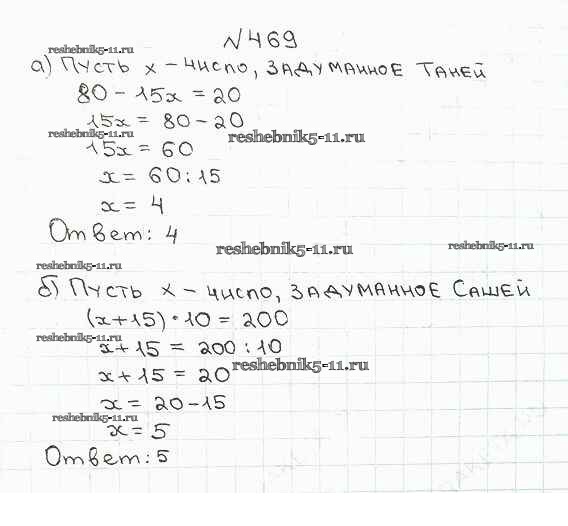 №469
reshebnik5-11.ru
а) Пусть х – число, задуманное Таней
80 – 15х = 20
15х = 80 – 20
reshebnik5-11.ru
reshebnik5-11.ru
15х = 60
х = 60:15
х = 4
Ответ: 4
reshebnik5-11.ru
reshebnik5-11.ru
reshebnik5-11.ru
б) Пусть х – число, задуманное Сашей
(х+15)·10 = 200
reshebnik5-11.ru
х+15 = 200:10
reshebnik5-11.ru
х+15 = 20
х = 20–15
reshebnik5-11.ru
х = 5
Ответ: 5